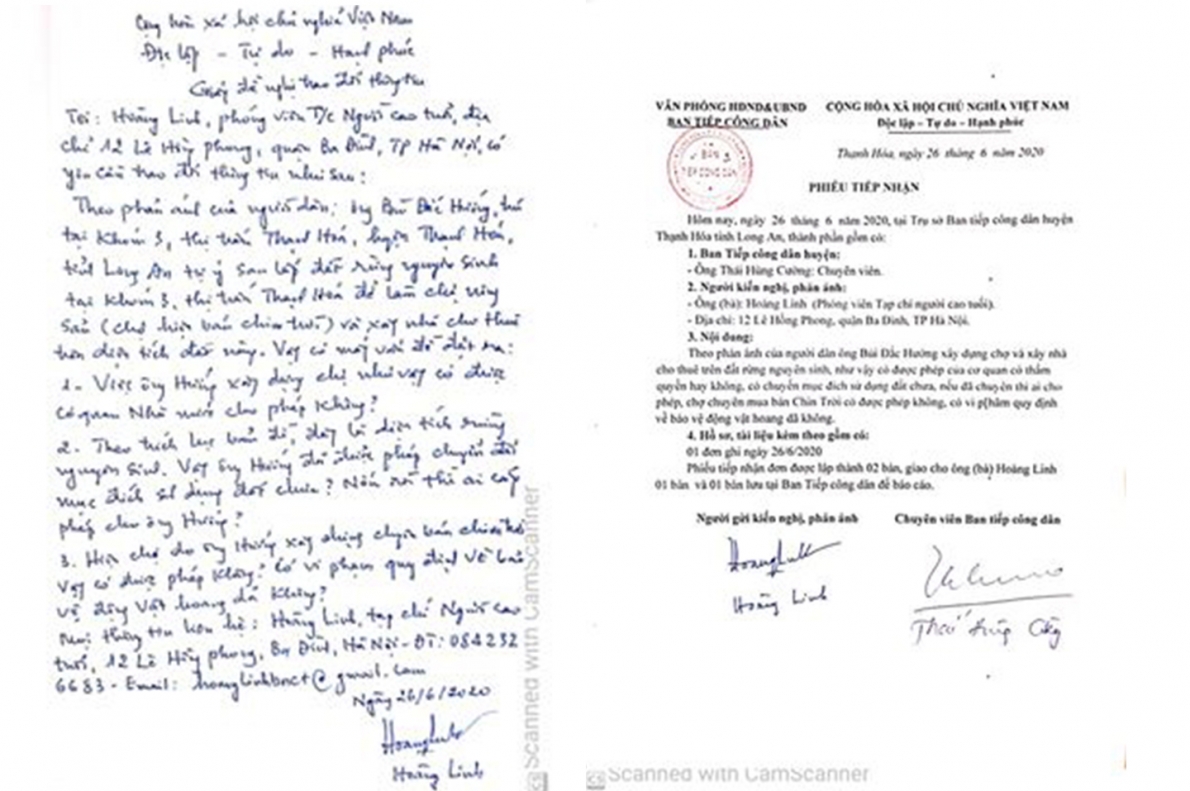 Cộng hòa xã hội chủ nghĩa Việt Nam
Độc lập - Tự do - Hạnh phúc
Giấy đề nghị trao đổi thông tin
Tôi: Hoàng Linh, phóng viên T/c Người cao tuổi, địa
chỉ 12 Lê Hồng phong, quận Ba Đình, TP Hà Nội, có
yêu cầu trao đổi thông tin như sau:
Theo phản ánh của người dân: ông Bùi Đắc Hướng, trú
tại Khóm 3, thị trấn Thạnh Hoá, huyện Thạnh Hoá,
tỉnh Long An tự ý san lấp đất rừng nguyên sinh
tại Khóm 3, thị trấn Thạnh Hoá để làm chợ nông
sản (chợ hiện bán chim trời) và xây nhà cho thuê
trên diện tích đất này. Vậy có mấy vấn đề đặt ra:
1. Việc ông Hướng xây dựng chợ như vậy có được
cơ quan Nhà nước cho phép không?
2. Theo trích lục bản đồ, đây là diện tích rừng
nguyên sinh. Vậy ông Hướng đã được phép chuyển đổi
mục đích sử dụng đất chưa? Nếu rồi thì ai cấp
phép cho ông Hướng?
3. Hiện chợ do ông Hướng xây dựng chuyên bán chim trời
vậy có được phép không? Có vi phạm quy định về bảo
vệ động vật hoang dã không?
Mọi thông tin liên hệ: Hoàng Linh, tạp chí Người cao
tuổi, 12 Lê Hồng phong, Ba Đình, Hà Nội - ĐT: 084 232
6683 - Email: hoanglinhbnct@gmail.com
Ngày 26/6/2020
Hoàng Linh
Scanned with CamScanner
VĂN PHÒNG HĐND&UBND
BAN TIẾP CÔNG DÂN
CỘNG HÒA XÃ HỘI CHỦ NGHĨA VIỆT NAM
Độc lập – Tự do – Hạnh phúc
BAN
TIẾP CÔNG DÂN
Thạnh Hóa, ngày 26 tháng 6 năm 2020
PHIẾU TIẾP NHẬN
Hôm nay, ngày 26 tháng 6 năm 2020, tại Trụ sở Ban tiếp công dân huyện
Thạnh Hóa tỉnh Long An, thành phần gồm có:
1. Ban Tiếp công dân huyện:
- Ông Thái Hùng Cường: Chuyên viên.
2. Người kiến nghị, phản ánh:
- Ông (bà): Hoàng Linh (Phóng viên Tạp chí người cao tuổi).
- Địa chỉ: 12 Lê Hồng Phong, quận Ba Đình, TP Hà Nội.
3. Nội dung:
Theo phản ánh của người dân ông Bùi Đắc Hướng xây dựng chợ và xây nhà
cho thuê trên đất rừng nguyên sinh, như vậy có được phép của cơ quan có thẩm
quyền hay không, có chuyển mục đích sử dụng đất chưa, nếu đã chuyển thì ai cho
phép, chợ chuyên mua bán Chim Trời có được phép không, có vi p[hâm quy định
về bảo vệ động vật hoang dã không.
4. Hồ sơ, tài liệu kèm theo gồm có:
01 đơn ghi ngày 26/6/2020
Phiếu tiếp nhận đơn được lập thành 02 bản, giao cho ông (bà) Hoàng Linh
01 bản và 01 bản lưu tại Ban Tiếp công dân để báo cáo.
Người gửi kiến nghị, phản ánh
Chuyên viên Ban tiếp công dân
Hoàng Linh
Thái Hùng Cường
Scanned with CamScanner